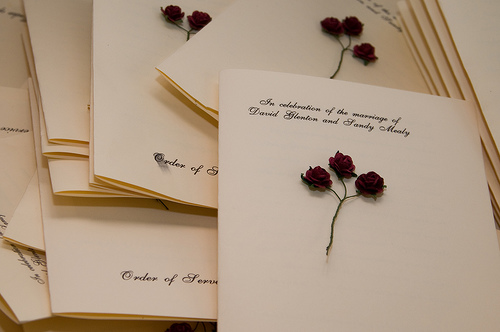 In celebration of the marriage of
David Glenton and Sandy Mealy
Order of S
Order of Serv